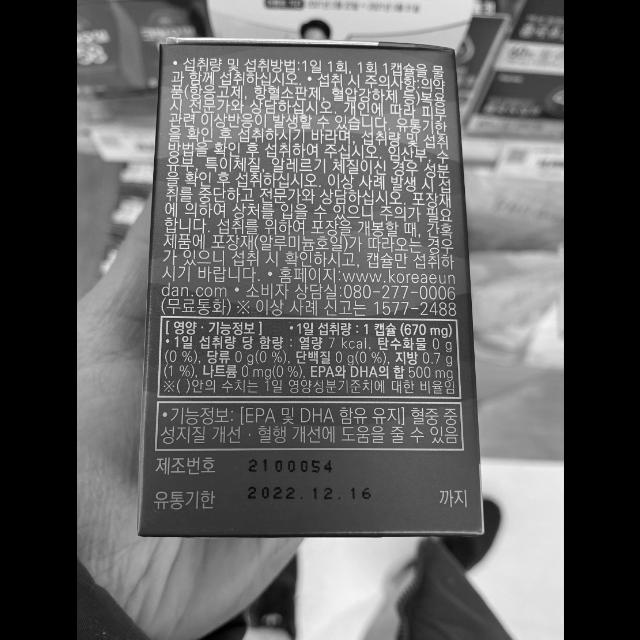 • 섭취량 및 섭취방법:1일 1회, 1회 1캡슐을 물
과 함께 섭취하십시오. • 섭취 시 주의사항:의약
품(항응고제, 항혈소판제, 혈압강하제 등)복용
시 전문가와 상담하십시오. 개인에 따라 피부
관련 이상반응이 발생할 수 있습니다. 유통기한
을 확인 후 섭취하시기 바라며, 섭취량 및 섭취
방법을 확인 후 섭취하여 주십시오. 임산부, 수
유부, 특이체질, 알레르기 체질이신 경우, 성분
을 확인 후 섭취하십시오. 이상 사례 발생 시 섭
취를 중단하고 전문가와 상담하십시오. 포장재
에 의하여 상처를 입을 수 있으니 주의가 필요
합니다. 섭취를 위하여 포장을 개봉할 때, 간혹
제품에 포장재(알루미늄호일)가 따라오는 경우
가 있으니 섭취 시 확인하시고, 캡슐만 섭취하
시기 바랍니다. • 홈페이지:www.koreaeun
dan.com • 소비자 상담실:080-277-0006
(무료통화) ※ 이상 사례 신고는 1577-2488
[ 영양 · 기능정보 ] • 1일 섭취량 : 1 캡슐 (670 mg)
• 1일 섭취량 당 함량 : 열량 7 kcal, 탄수화물 0 g
(0 %), 당류 0 g(0 %), 단백질 0 g(0 %), 지방 0.7 g
(1 %), 나트륨 0 mg(0 %), EPA와 DHA의 합 500 mg
※( )안의 수치는 1일 영양성분기준치에 대한 비율임
• 기능정보: [EPA 및 DHA 함유 유지] 혈중 중
성지질 개선 · 혈행 개선에 도움을 줄 수 있음
제조번호 2100054
유통기한 2022.12.16 까지